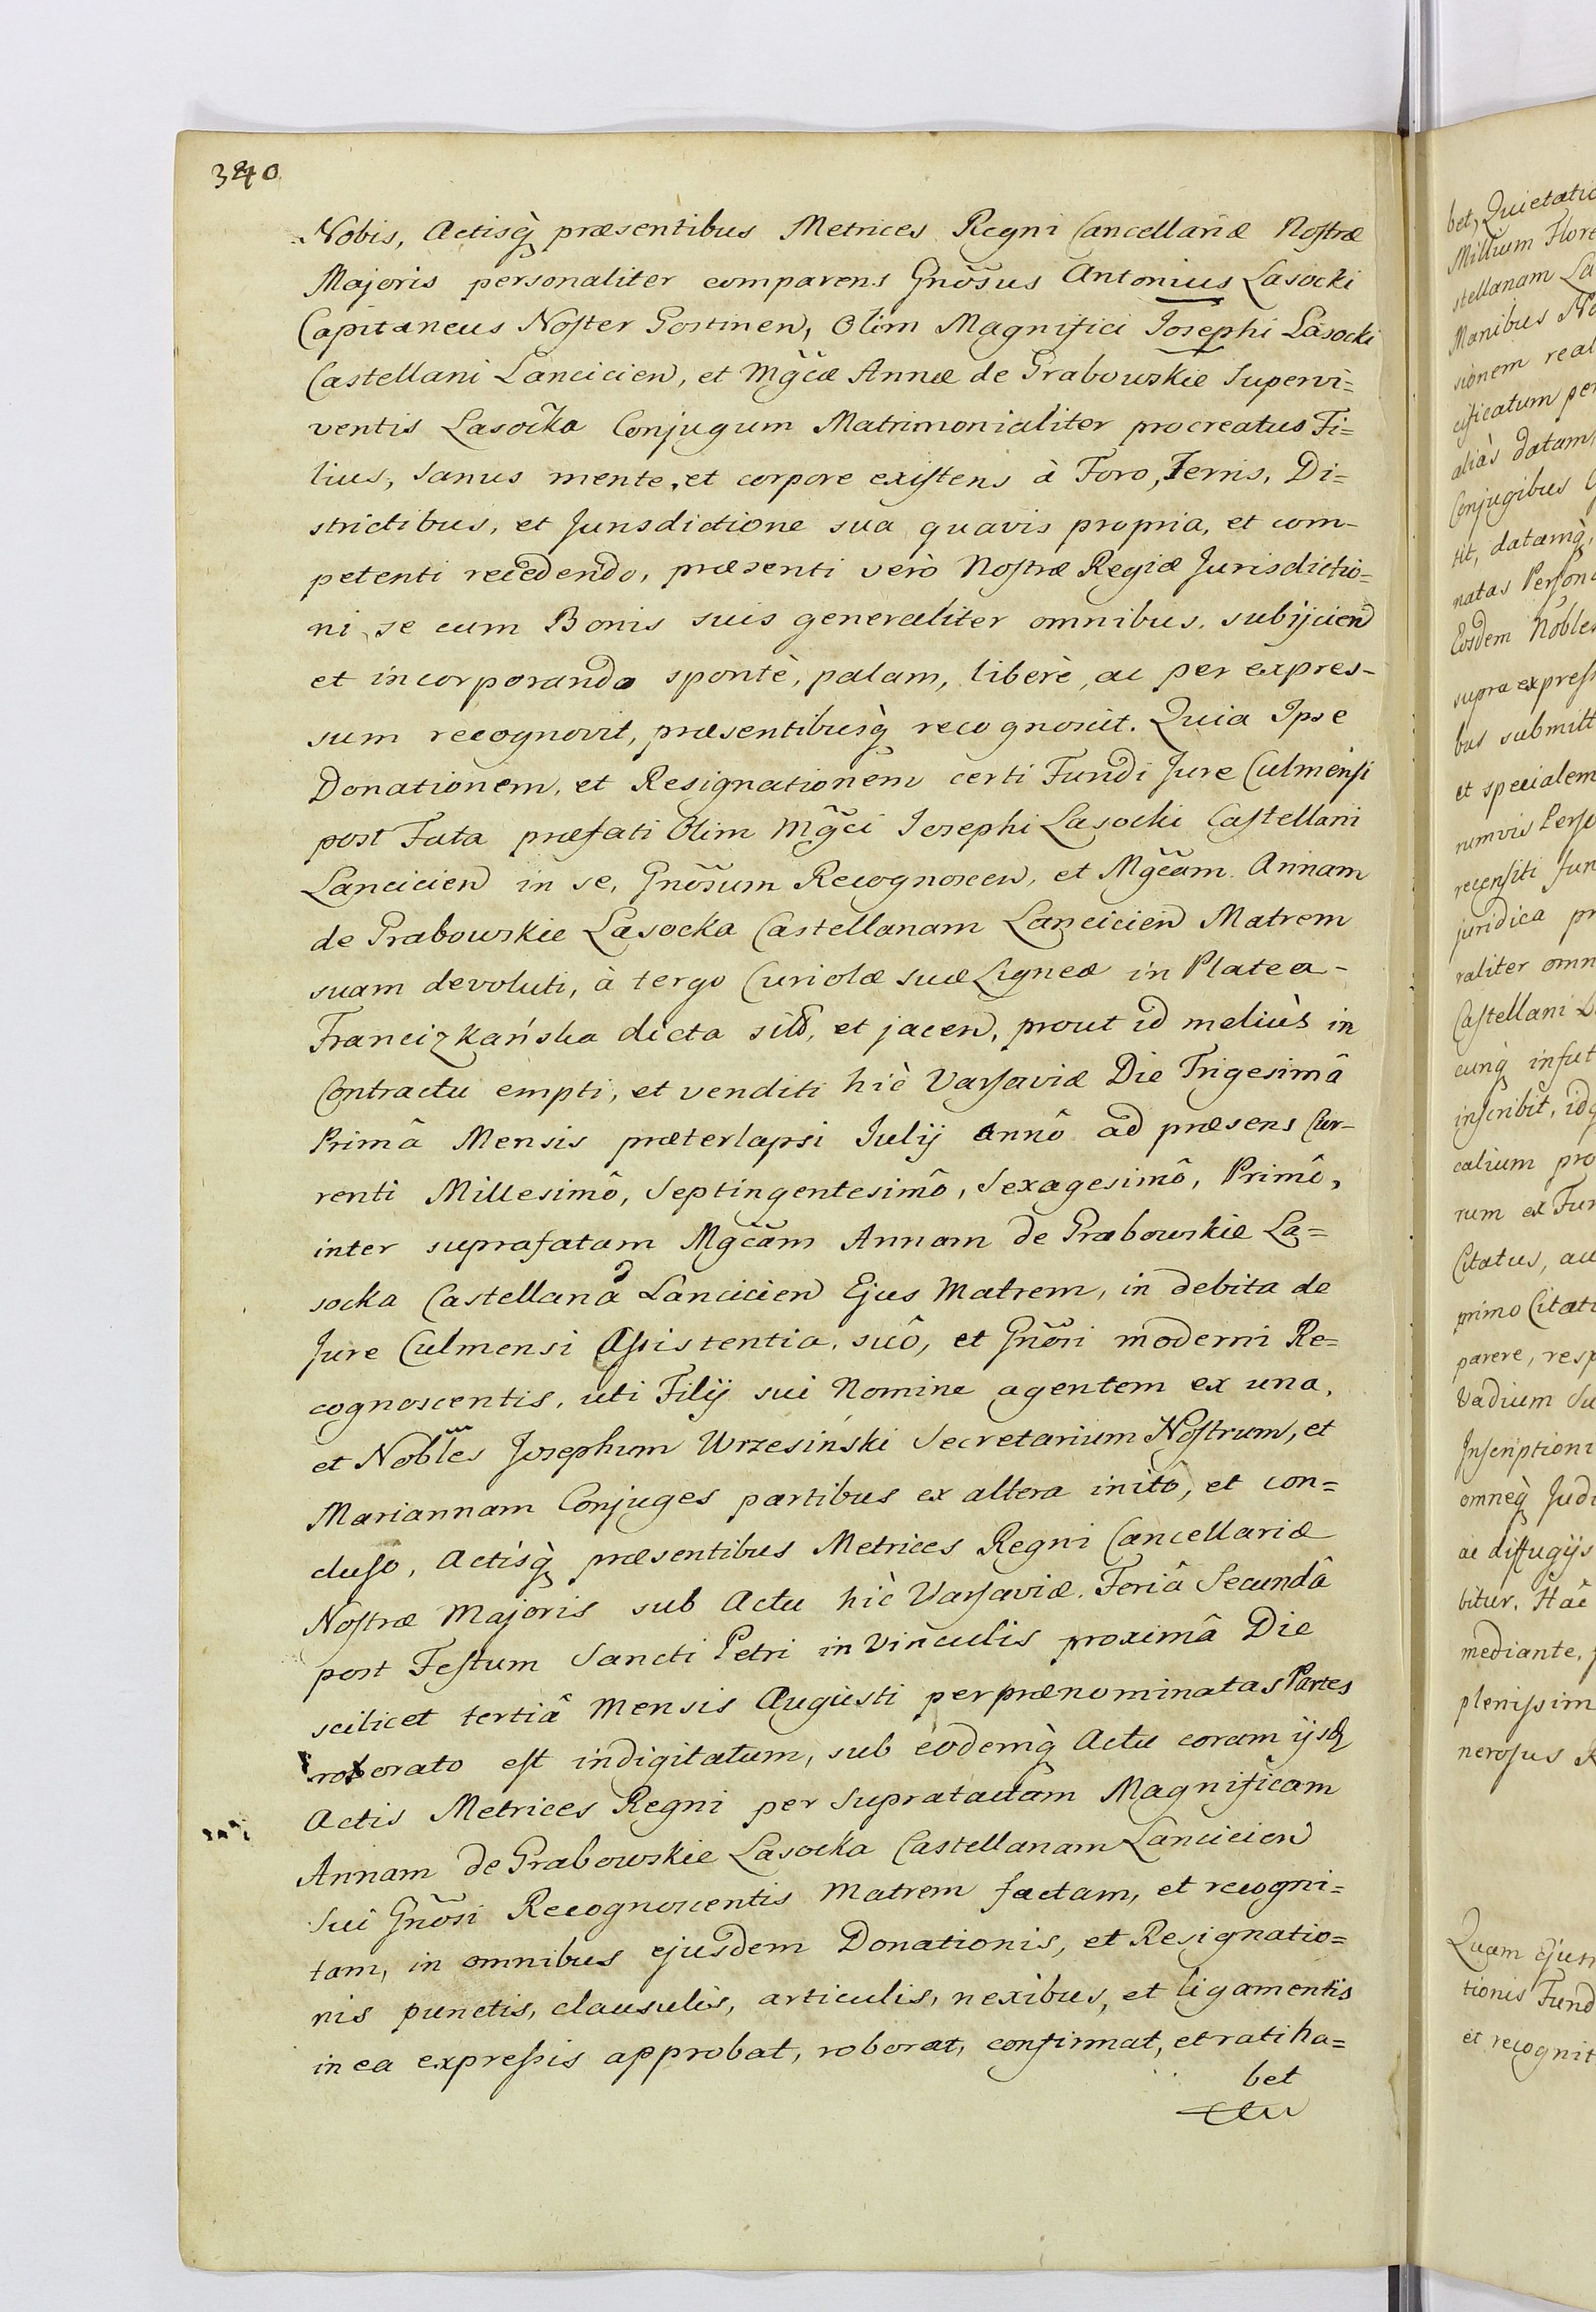 340
Nobis, Actisq̀ præsentibus Metrices Regni Cancellariæ Nostræ
Majoris personaliter comparens Gnõsus Antonius Lasocki
Capitaneus Noster Gostinen, Olim Magnifici Josephi Lasocki
Castellani Lancicien, et Mg̃cæ Annæ de Grabowskie Supervi=
ventis Lasocka Conjugum Matrimonialiter procreatus Fi=
lius, Sanus mente, et corpore existens à Foro, Terris, Di=
strictibus, et Jurisdictione sua quavis propria, et com-
petenti recedendo, præsenti verò Nostræ Regiæ Jurisdictio=
ni se cum Bonis suis generaliter omnibus. subijcien
et incorporando spontè, palam, liberè, ac per expres-
sum recognovit, præsentibusq̀ recognoscit. Quia Ipse
Donationem, et Resignationem certi Fundi Jure Culmensi
post Fata præfati Olim Mg̃ci Josephi Lasocki Castellani
Lancicien in se, Gnõsum Recognoscen, et Mg̃cam Annam
de Grabowskie Lasocka Castellanam Lancicien Matrem
suam devoluti, à tergo Curiolæ suæ Ligneæ in Platea-
Francizkańska dicta sitt, et jacen, prout id meliùs in
Contractu empti, et venditi hìc Varsaviæ Die Trigesimâ
Primâ Mensis præterlapsi Julij Annô ad præsens Cur-
renti Millesimô, Septingentesimô, Sexagesimô, Primô,
inter suprafatam Mg̃cam Annam de Grabowskie La=
socka Castellana Lancicien Ejus Matrem, in debita de
Jure Culmensi Assistentia, suô, et Gnõsi moderni Re=
cognoscentis, uti Filij sui Nomine agentem ex una,
et Nobles Josephum Wrzesiński Secretarium Nostrum, et
Mariannam Conjuges partibus ex altera inito, et con=
cluso, Actisq̀ præsentibus Metrices Regni Cancellariæ
Nostræ Majoris sub Actu hìc Varsaviæ Feriâ Secundâ
post Festum Sancti Petri in Vinculis proximâ Die
scilicet tertiâ Mensis Augusti per prænominatas Partes
roborato est indigitatum, sub eodemq̀ Actu coram ijsq
Actis Metrices Regni per Supratactam Magnificam
Annam de Grabowskie Lasocka Castellanam Lancicien
Sui Gnõsi Recognoscentis Matrem factam, et recogni=
tam, in omnibus ejusdem Donationis, et Resignatio=
nis punctis, clausulis, articulis, nexibus, et ligamentis
in ea expressis approbat, roborat, confirmat, et ratiha=
bet
bet, Quietatio
Millium Flore
stellanam La
Manibus No
sionem real
cificatum per
aliàs datam
Conjugibus
tit, datamq̀,
natas Person
Eosdem Nobles
supra express
bus submitt
et specialem
rumvis Perso
recensiti Fun
juridica pr
raliter omn
Castellani L
cunq̀ infut
inscribit, idq
calium pro
rum ex Fun
Citatus, au
primo Citat
parere, resp
Vadium Su
Inscriptioni
omneq̀ Judi
ac diffugijs
bitur. Hâc
mediante,
plenissim
nerosus R
Quam Ejus
tionis Fund
et recognit